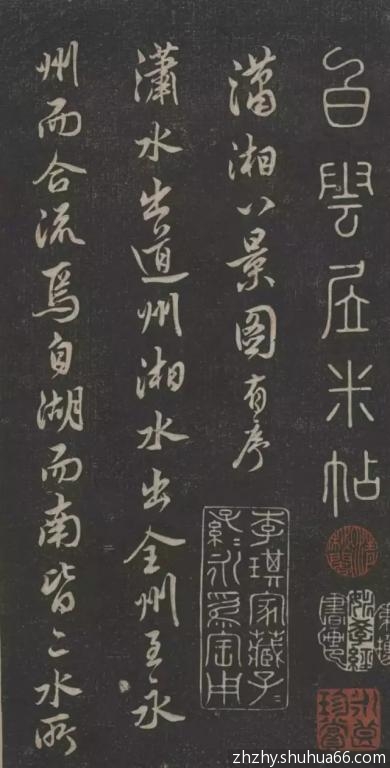 白雲居米帖
瀟湘八景圖有序
瀟水出道州湘水出全州至永
州而合流焉自湖而南皆二水所
李琪家藏子〻
孫〻永為寶用
zhzhy.shuhua66.com